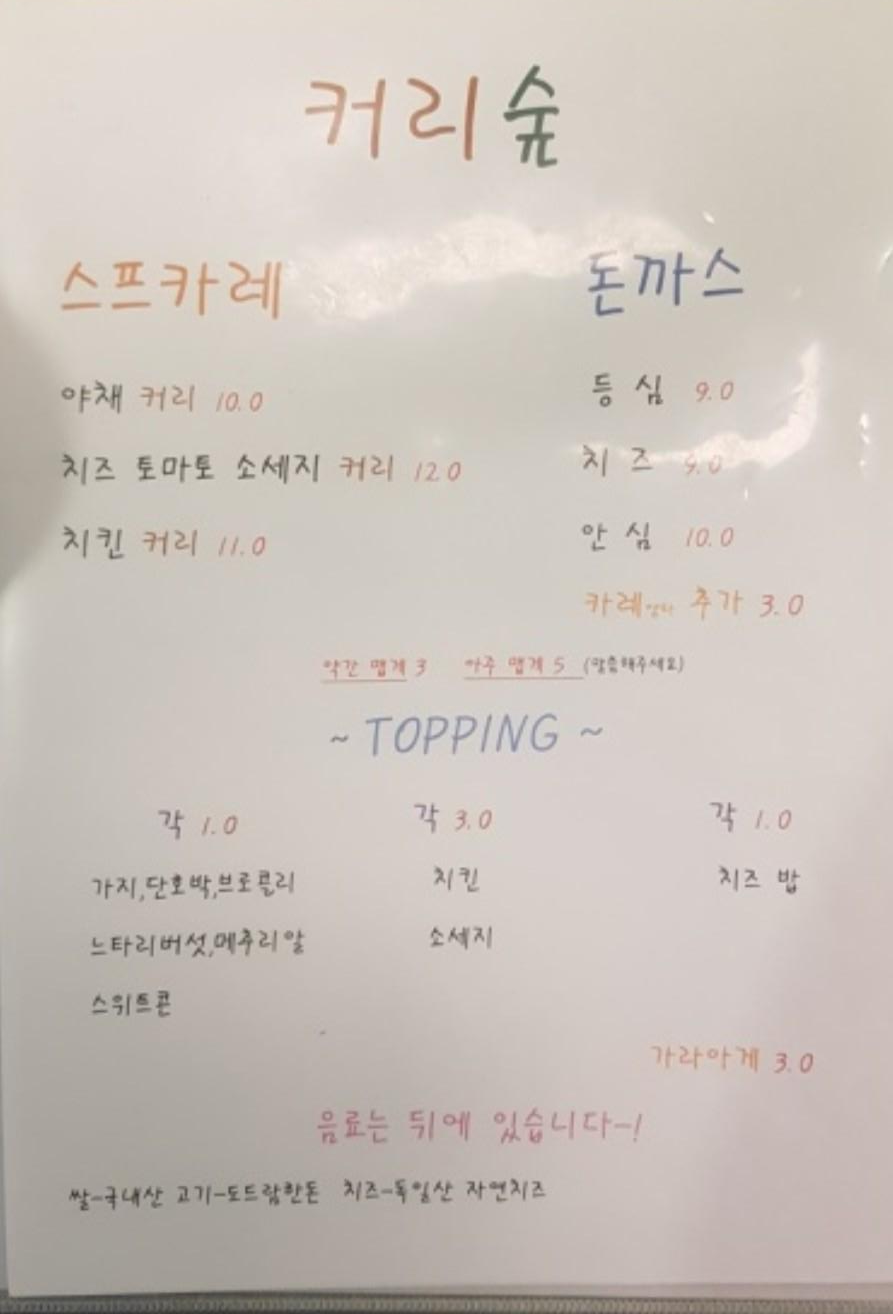 커리숲
스프카레
야채 커리 10.0
치즈 토마토 소세지 커리 12.0
치킨 커리 11.0
돈까스
등심 9.0
치즈 9.0
안심 10.0
카레 추가 3.0
약간 맵게 3 아주 맵게 5 (말씀해주세요)
~ TOPPING ~
각 1.0
가지,단호박,브로콜리
느타리버섯,메추리알
스위트콘
각 3.0
치킨
소세지
각 1.0
치즈 밥
가라아게 3.0
음료는 뒤에 있습니다~!
쌀-국내산 고기-도드람한돈 치즈-독일산 자연치즈